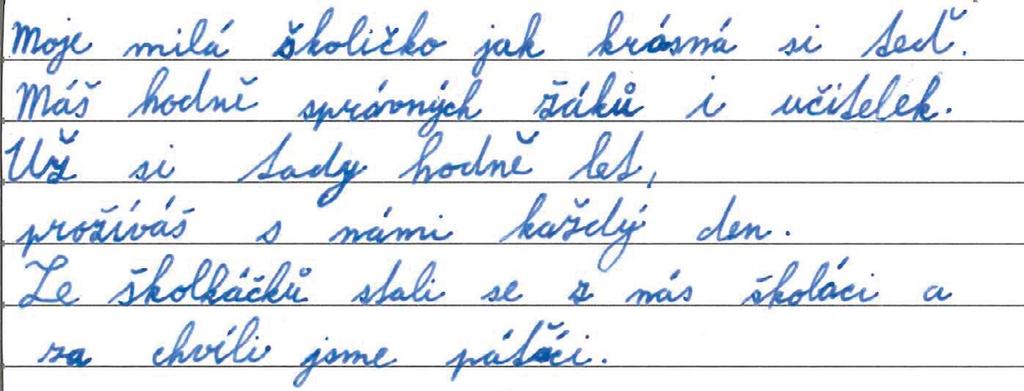 Moje milá školičko jak krásná si teď.
Máš hodně správných žáků i učitelek.
Už si tady hodně let,
prožíváš s námi každý den.
Ze školkáčků stali se z nás školáci a
za chvíli jsme páťáci.